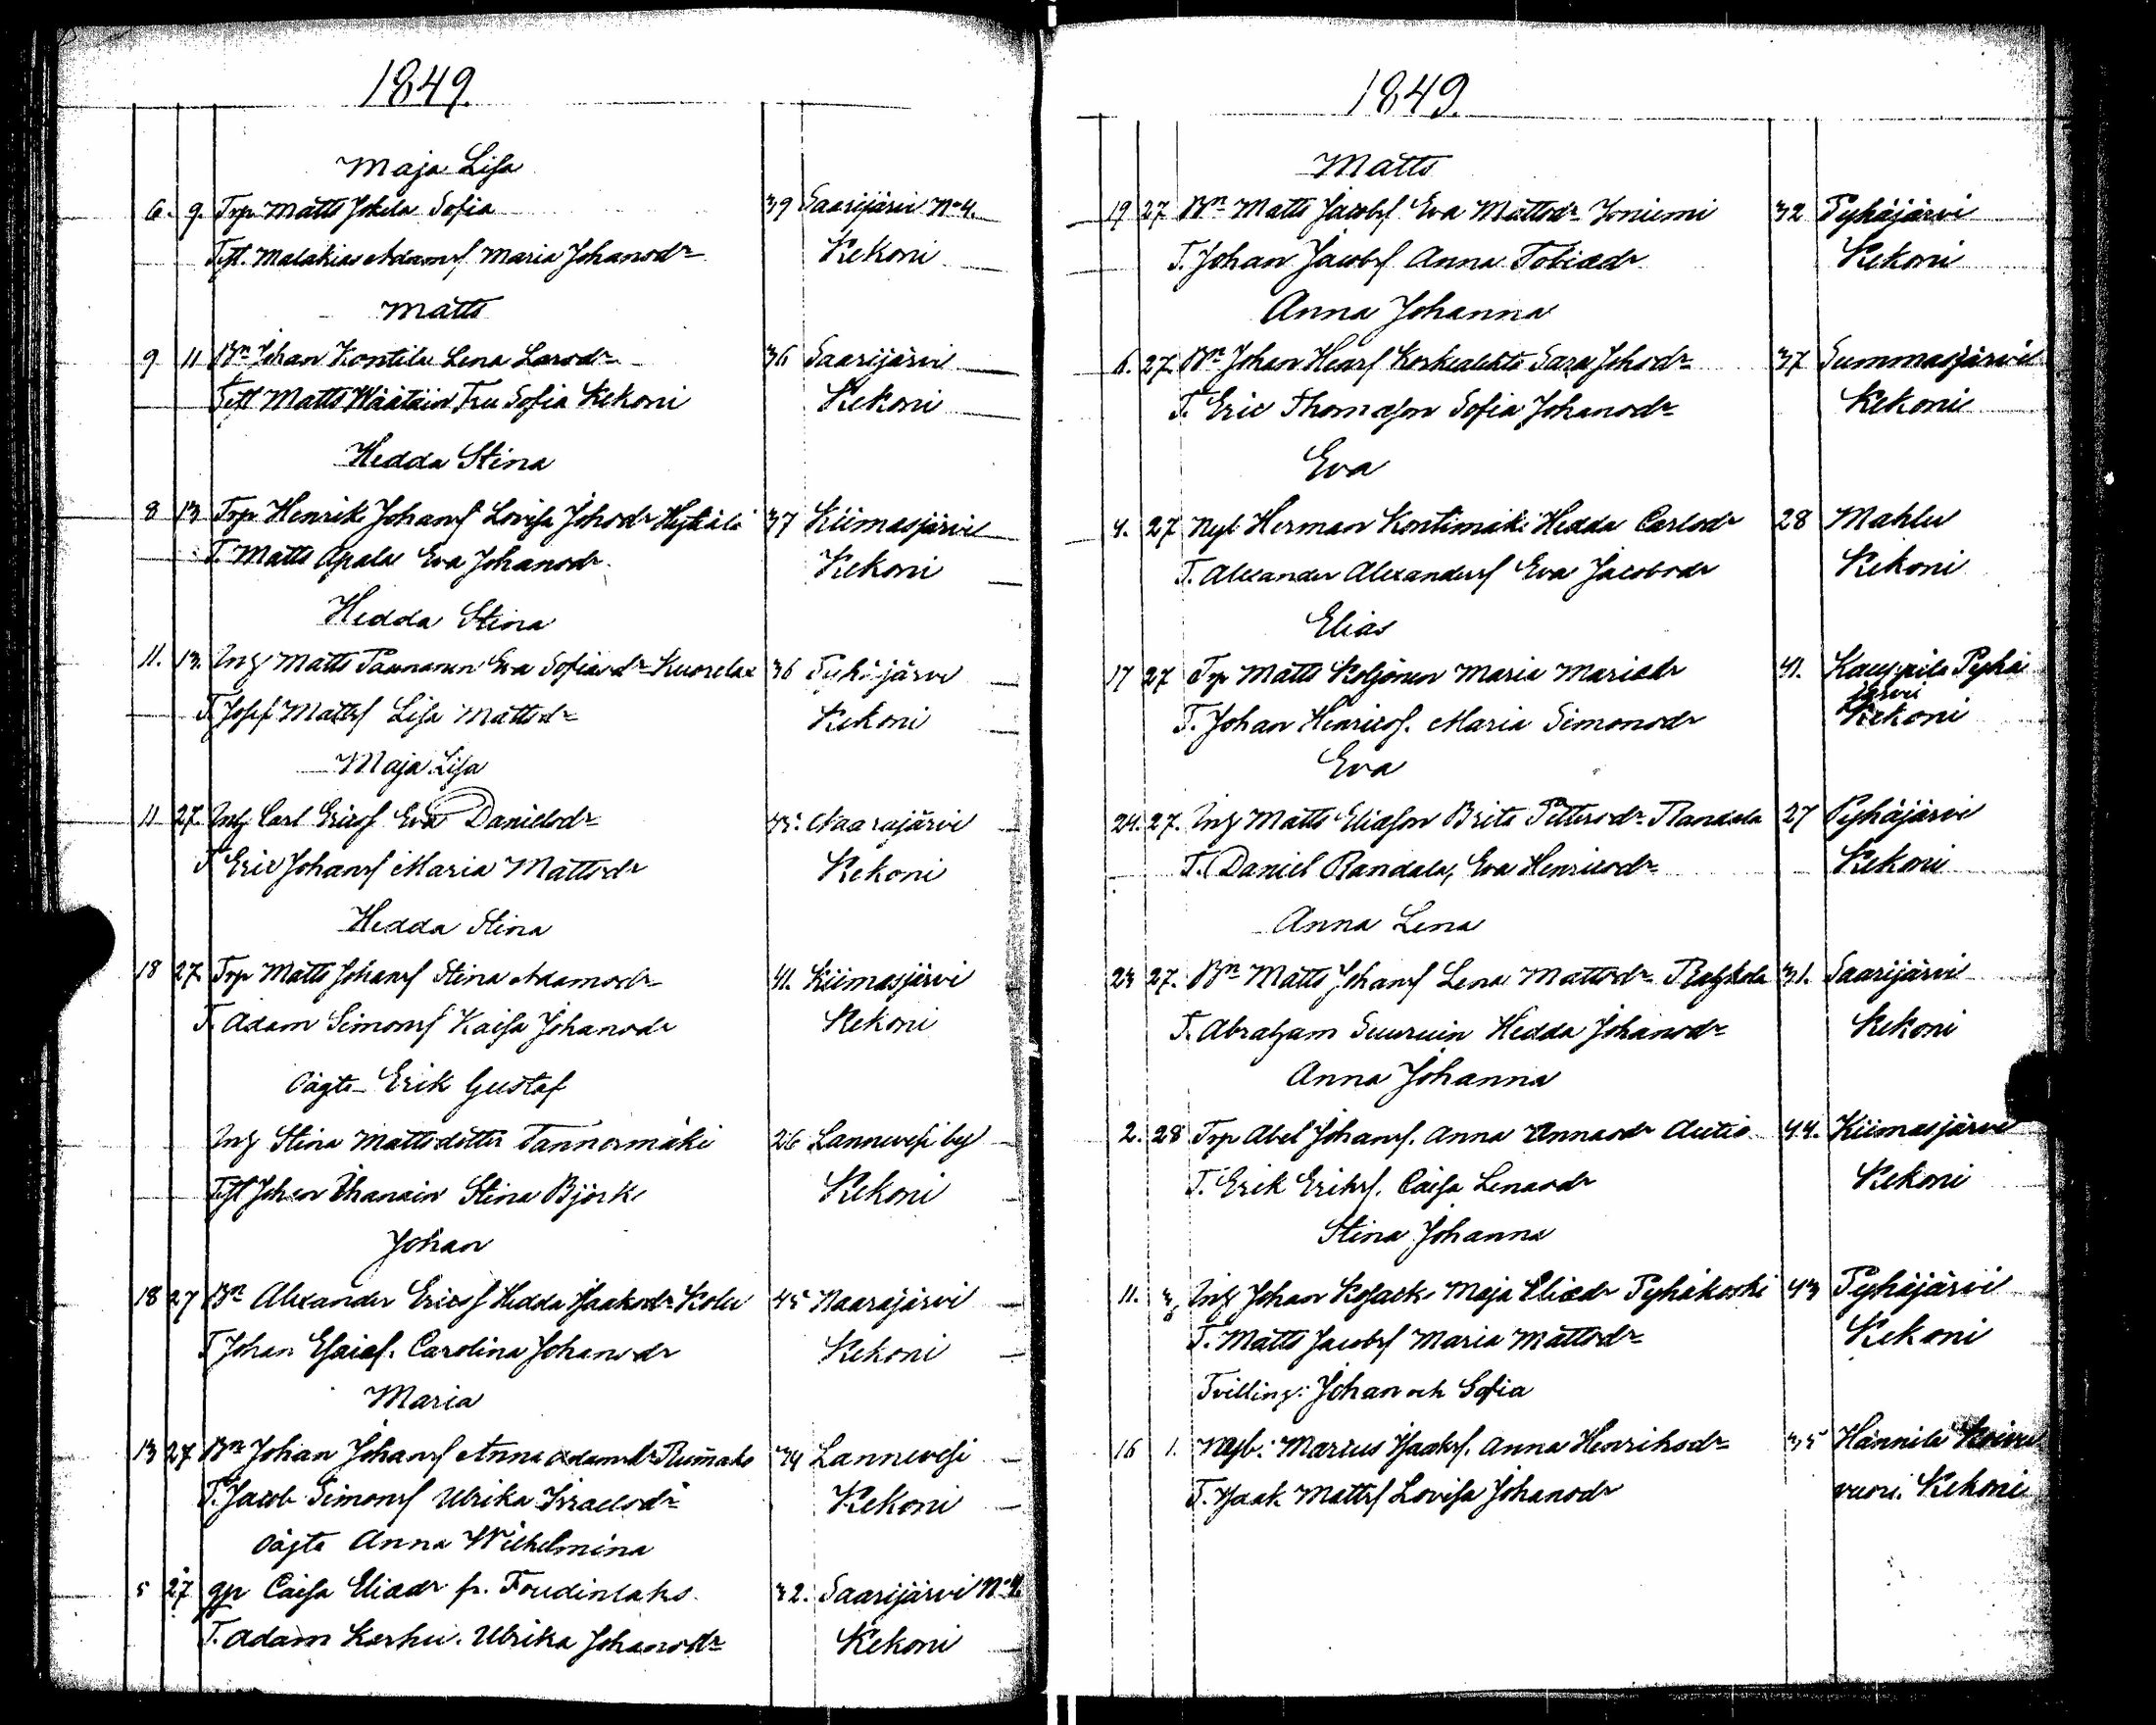 1849.
Maja Lisa
6. 9. Trp Matts Jokela Sofia 39 Saarijärvi No 4.
Test. Malakias Adamsf Maria Johansdr Kekoni
Matts
9 11 Bn Johan Kontila Lena Larsdr 36 Saarijärvi
Test Matts Wäätäin Fru Sofia Kekoni Kekoni
Hedda Stina
8 13 Trp Henrik Johansf Lovisa Johsdr 37 Kiimasjärvi
T. Matts Apala Eva Johansdr Kekoni
Hedda Stina
11. 13. Inh Matts Paananen Eva Sofiasdr Kuorelax 36 Pyhäjärvi
T. Josef Mattsf Lisa Mattsdr Kekoni
Maja Lisa
11 27. Inh Carl Ericsf Eva Danielsdr 45. Naarajärvi
T Eric Johansf Maria Mattsdr Kekoni
Hedda Stina
18 27 Trp Matts Johansf Stina Adamsdr 41. Kiimasjärvi
T. Adam Simonsf Kaisa Johansdr Kekoni
oägta Erik Gustaf
Inh Stina Mattsdotter Tannermäki 26 Lannevesi by
Test Johan Ihanain Stina Björk Kekoni
Johan
18 27 Bn Alexander Ericsf Hedda Isaaksdr Kolu 45 Naarajärvi
T Johan Esaiasf. Carolina Johansdr Kekoni
Maria
13 27 Bn Johan Johansf Anna Adamsdr 34 Lannevesi
T. Jacob Simonsf Ulrika Israelsdr Kekoni
oägta Anna Wilhelmina
5 27 gp Caisa Eliasdr fr. 32. Saarijärvi No 4.
T. Adam Karhu. Ulrika Johansdr Kekoni
1849.
Matts
19 27 Bn Matts Jacobsf Eva Mattsdr Joniemi 32 Pyhäjärvi
T. Johan Jacobsf Anna Tobiasdr Kekoni
Anna Johanna
6. 27. Bn Johan Henrsf Korkealehto Sara Johsdr 37 Summasjärvi
T. Eric Thomasson Sofia Johansdr Kekoni
Eva
4. 27 Nyb Herman Kontimäki Hedda Carlsdr 28 Mahlu
T. Alexander Alexandersf Eva Jacobsdr Kekoni
Elias
17 27 Trp Matts Koljonen Maria Mariasdr 41. Kauppila Pyhä
järvi
T. Johan Henricsf. Maria Simonsdr Kekoni
Eva
24. 27. Inh Matts Eliasson Brita Pettersdr Randala 27 Pyhäjärvi
T. Daniel Randala, Eva Henricsdr Kekoni
Anna Lena
23 27. Bn Matts Johansf Lena Mattsdr 31. Saarijärvi
T. Abraham Suuruin Hedda Johansdr Kekoni
Anna Johanna
2. 28 Trp Abel Johansf. Anna Annasdr Autio 44. Kiimasjärvi
T. Erik Eriksf. Caisa Lenasdr Kekoni
Stina Johanna
11. Inh Johan Kosack Maja Eliasdr Pyhäkoski 43 Pyhäjärvi
T. Matts Jacobsf Maria Mattsdr Kekoni
Tvilling: Johan och Sofia
16 1. Nyb. Marcus Isaaksf. Anna Henriksdr 35 Hännilä Koivu
T. Isaak Mattsf Lovisa Johansdr vuori. Kekoni